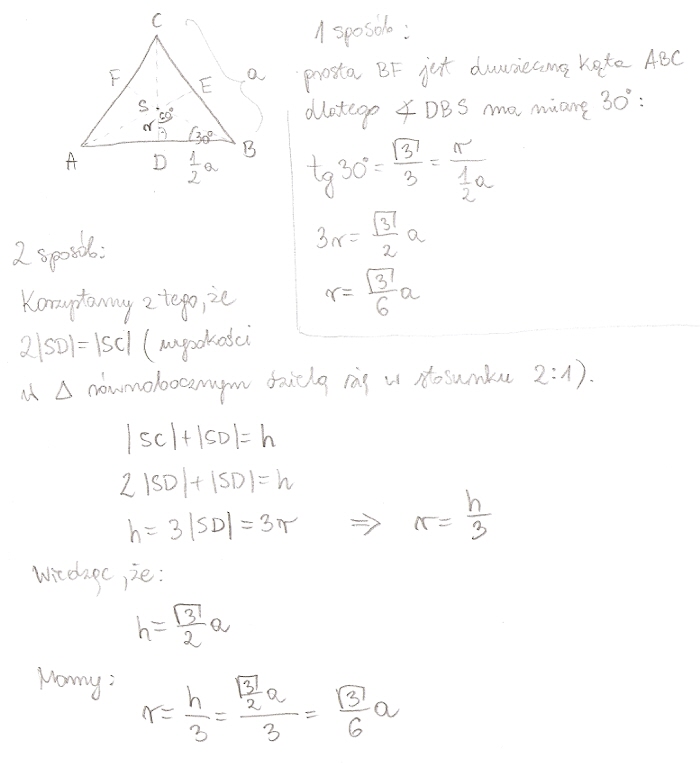 C
F
E
a
S
60°
r
30°
A
D
1/2 a
B
1 sposób:
prosta BF jest dwusieczną kąta ABC
dlatego ∢ DBS ma miarę 30°:
tg 30° = √3/3 = r/(1/2 a)
3r = √3/2 a
r = √3/6 a
2 sposób:
Korzystamy z tego, że
2|SD| = |SC| (wysokości
w Δ równobocznym dzielą się w stosunku 2:1).
|SC| + |SD| = h
2|SD| + |SD| = h
h = 3|SD| = 3r ⇒ r = h/3
Wiedząc, że:
h = √3/2 a
Mamy:
r = h/3 = (√3/2 a)/3 = √3/6 a